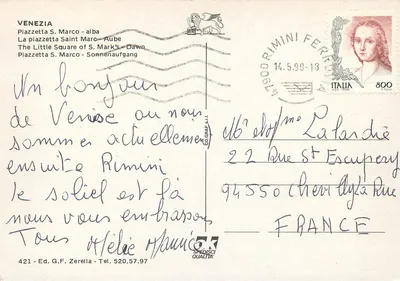 VENEZIA
Piazzetta S. Marco - alba
La piazzetta Saint Marc - Aube
The Little Square of S. Mark's - Dawn
Piazzetta S. Marco - Sonnenaufgang
47900 RIMINI FERROVIA
14.5.98-18
ITALIA 800
Un bonjour
de Venise où nous
sommes actuellement
ensuite Rimini
le soleil est là
nous vous embrassons
Tous
Mélie Maurice
Mr et Mme Lalardie
22 Rue St Exupery
94550 Chevilly La Rue
FRANCE
ok
SPEDISCI
QUALITA'
421 - Ed. G.F. Zerella - Tel. 520.57.97